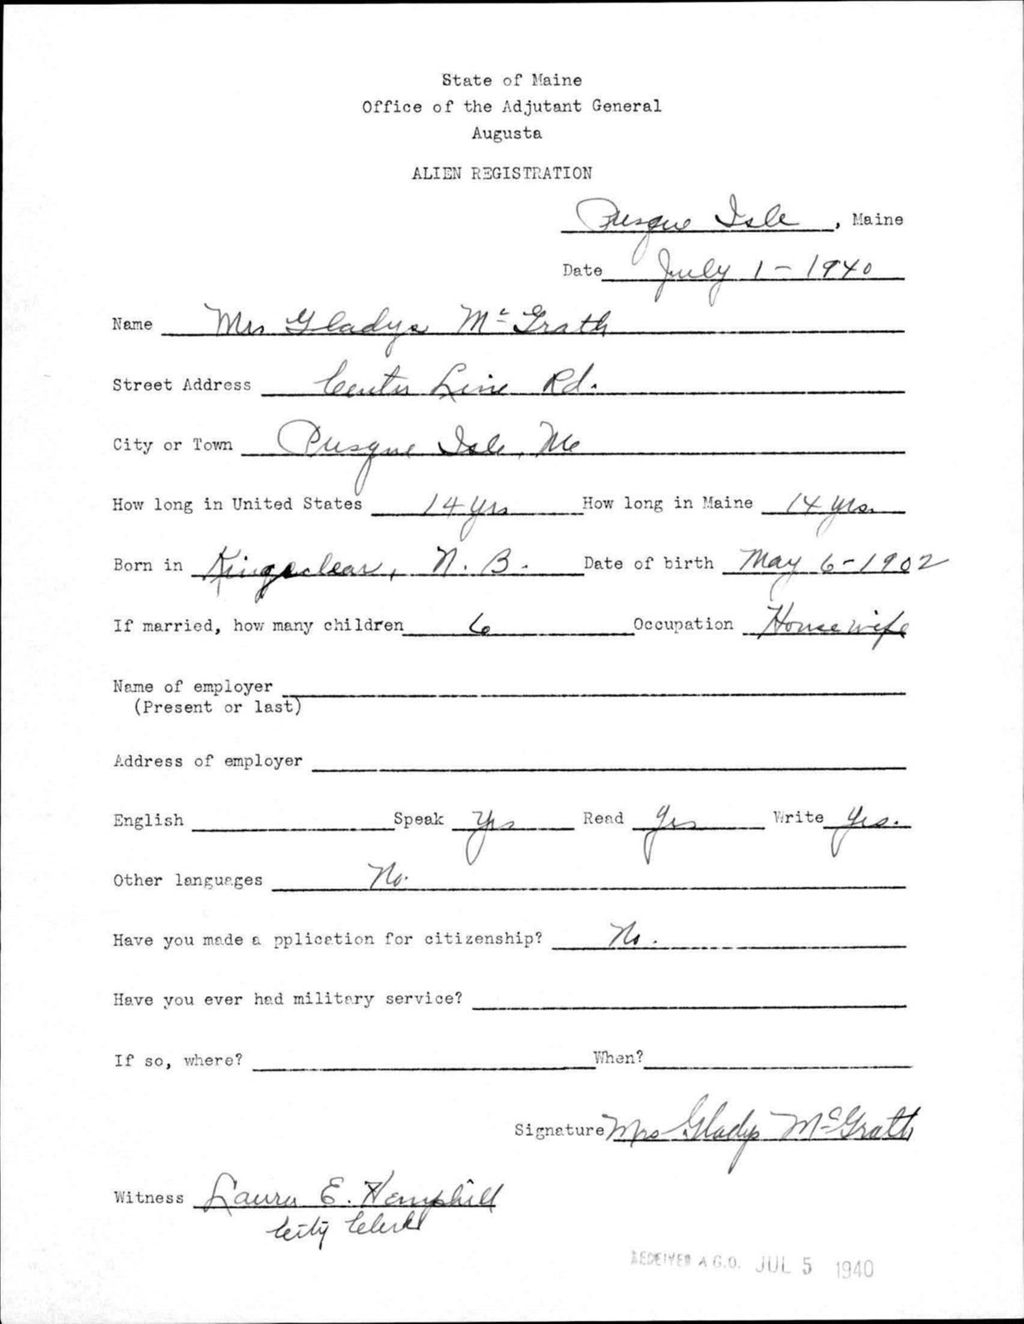 State of Maine
Office of the Adjutant General
Augusta
ALIEN REGISTRATION
Presque Isle, Maine
Date July 1 - 1940
Name Mrs Gladys McGrath
Street Address Center Line Rd.
City or Town Presque Isle, Me
How long in United States 14 yrs How long in Maine 14 yrs.
Born in Kingsclear, N. B. Date of birth May 6 - 1902
If married, how many children 6 Occupation Housewife
Name of employer
(Present or last)
Address of employer
English Speak Yes Read Yes Write Yes.
Other languages No.
Have you made a pplication for citizenship? No.
Have you ever had military service?
If so, where? When?
Signature Mrs Gladys McGrath
Witness Laura E. Hemphill
City Clerk
RECEIVED A.G.O. JUL 5 1940